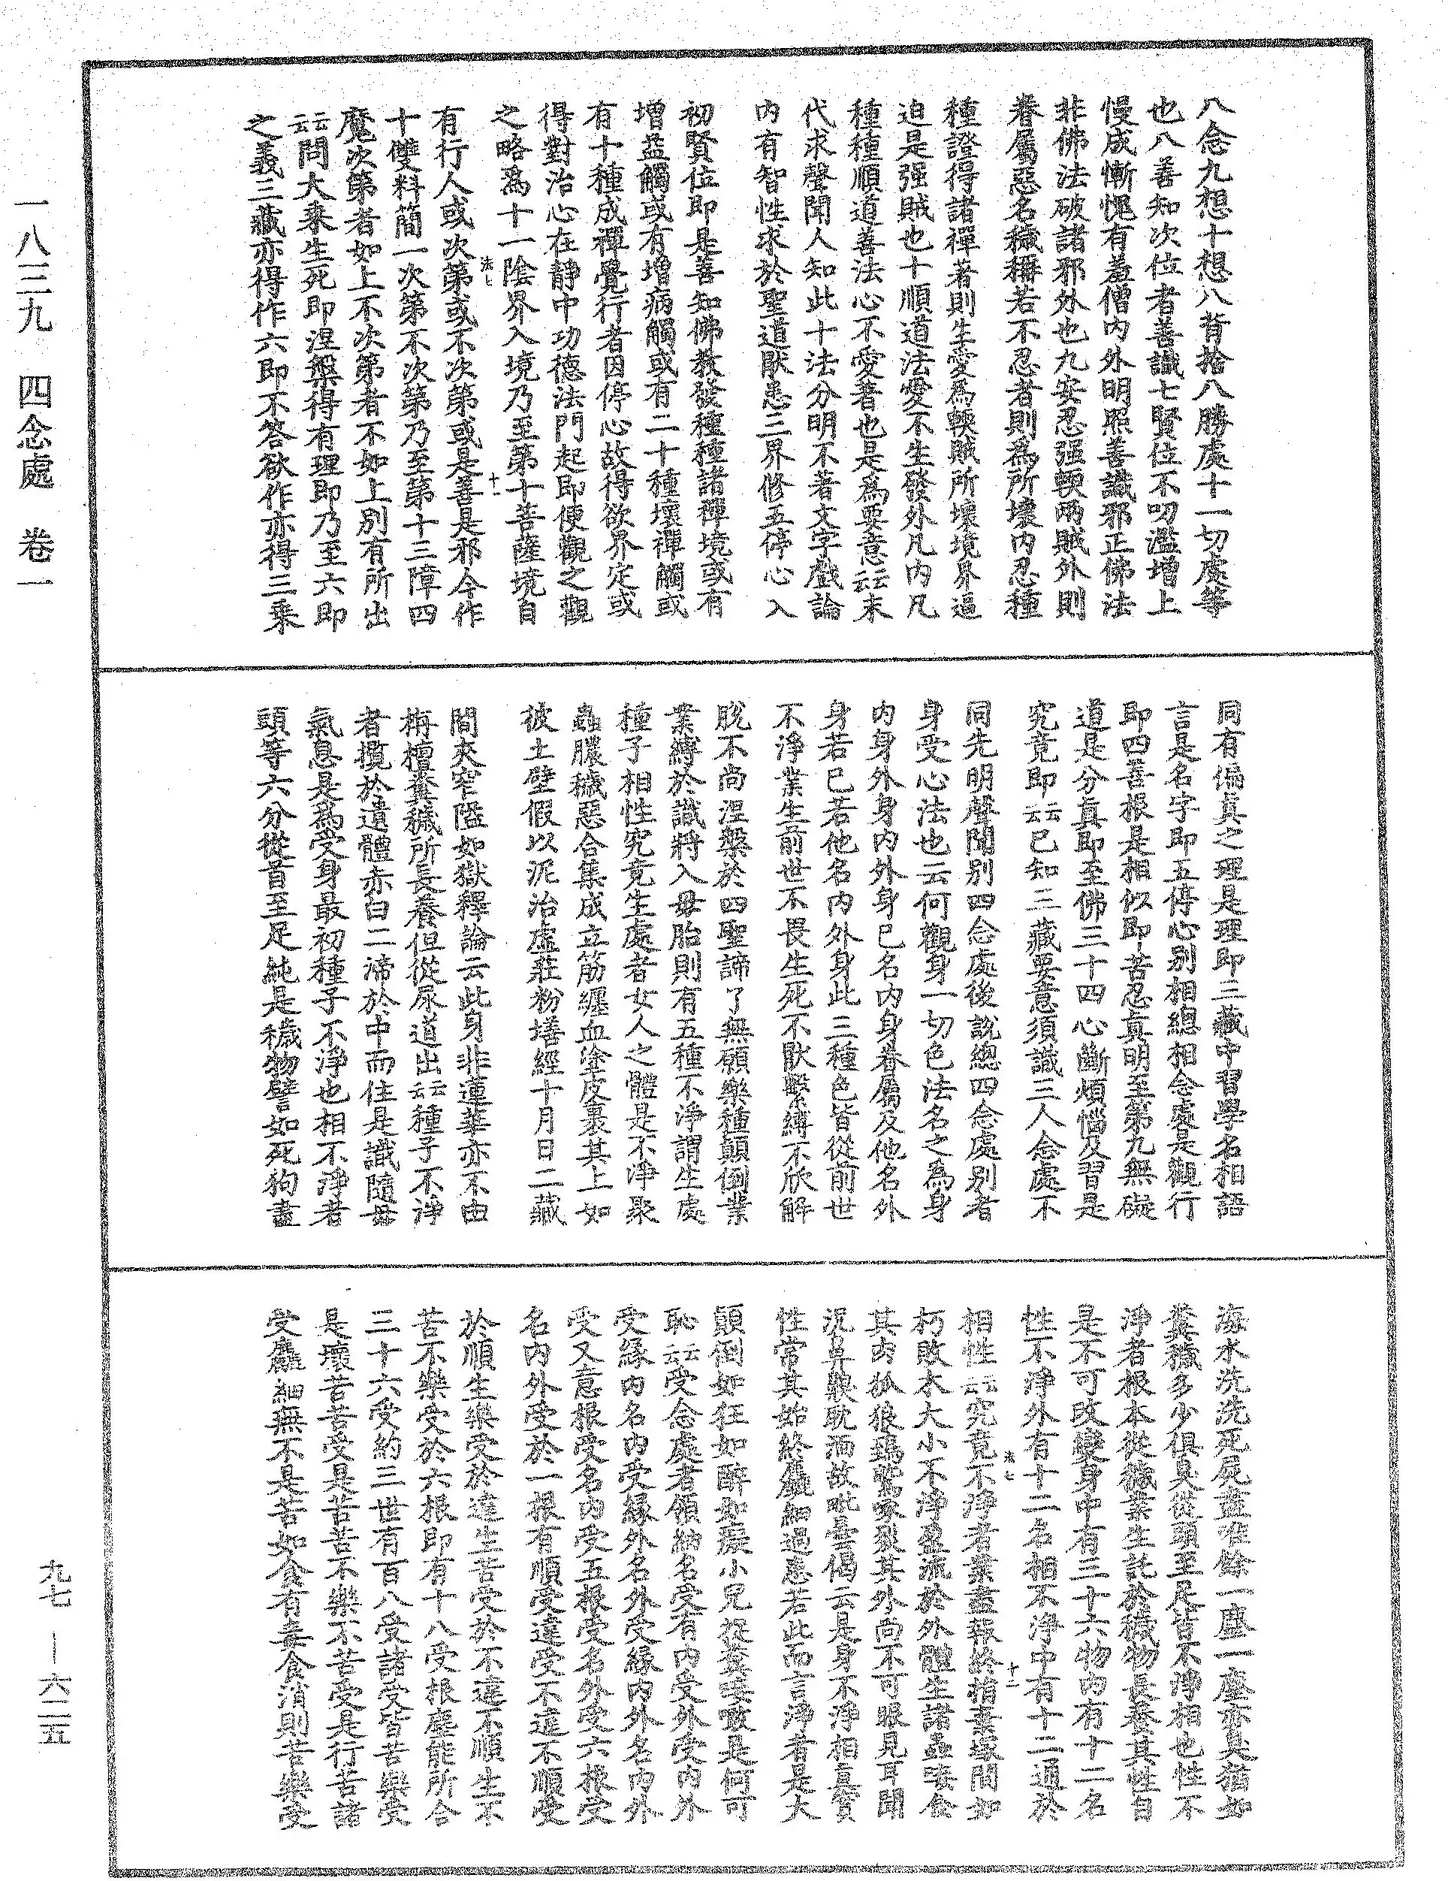 八念九想十想八背捨八勝處十一切處等
也八善知次位者善識七賢位不叨濫增上
慢成慚愧有羞僧內外明照善識邪正佛法
非佛法破諸邪外也九安忍强輭兩賊外則
眷屬惡名穢稱若不忍者則為所壞內忍種
種證得諸禪著則生愛為輭賊所壞境界逼
迫是强賊也十順道法愛不生發外凡內凡
種種順道善法心不愛著也是為要意云云末
代求聲聞人知此十法分明不著文字戲論
內有智性求於聖道厭患三界修五停心入
初賢位即是善知佛教發種種諸禪境或有
增益觸或有增病觸或有二十種壞禪觸或
有十種成禪覺行者因停心故得欲界定或
得對治心在靜中功德法門起即便觀之觀
之略為十一陰界入境乃至第十菩薩境自
有行人或次第或不次第或是善是邪今作
十雙料簡一次第不次第乃至第十三障四
魔次第者如上不次第者不如上別有所出
云云問大乘生死即涅槃得有理即乃至六即
之義三藏亦得作六即不答欲作亦得三乘
同有偏真之理是理即三藏中習學名相語
言是名字即五停心別相總相念處是觀行
即四善根是相似即苦忍真明至第九無礙
道是分真即至佛三十四心斷煩惱及習是
究竟即云云已知三藏要意須識三人念處不
同先明聲聞別四念處後說總四念處別者
身受心法也云何觀身一切色法名之為身
內身外身內外身已名內身眷屬及他名外
身若已若他名內外身此三種色皆從前世
不淨業生前世不畏生死不厭繫縛不欣解
脫不尚涅槃於四聖諦了無願樂種顛倒業
業縛於識將入母胎則有五種不淨謂生處
種子相性究竟生處者女人之體是不淨聚
蟲膿穢惡合集成立筋纏血塗皮裹其上如
彼土壁假以泥治虛莊粉墡經十月日二藏
間夾窄隘如獄釋論云此身非蓮華亦不由
栴檀糞穢所長養但從尿道出云云種子不淨
者攬於遺體赤白二渧於中而住是識隨母
氣息是為受身最初種子不淨也相不淨者
頭等六分從首至足純是穢物譬如死狗盡
海水洗洗死屍盡唯餘一塵一塵亦臭猶如
糞穢多少俱臭從頭至足皆不淨相也性不
淨者根本從穢業生託於穢物長養其性自
是不可改變身中有三十六物內有十二名
性不淨外有十二名相不淨中有十二通於
相性云云究竟不淨者業盡報終捐棄塚間如
朽敗木大小不淨盈流於外體生諸蟲唼食
其肉狐狼鵄鷲啄裂其外尚不可眼見耳聞
況鼻齅耽湎故毗曇偈云是身不淨相真實
性常其始終麤細過患若此而言淨者是大
顛倒如狂如醉如癡小兒捉糞唼噉是何可
恥云云受念處者領納名受有內受外受內外
受緣內名內受緣外名外受緣內外名內外
受又意根受名內受五根受名外受六根受
名內外受於一根有順受違受不違不順受
於順生樂受於違生苦受於不違不順生不
苦不樂受於六根即有十八受根塵能所合
三十六受約三世有百八受諸受皆苦樂受
是壞苦苦受是苦苦不樂不苦受是行苦諸
受麤細無不是苦如食有毒食消則苦樂受
法七
十一
法七
十二
一八三九 四念處 卷一
九七 — 六二五